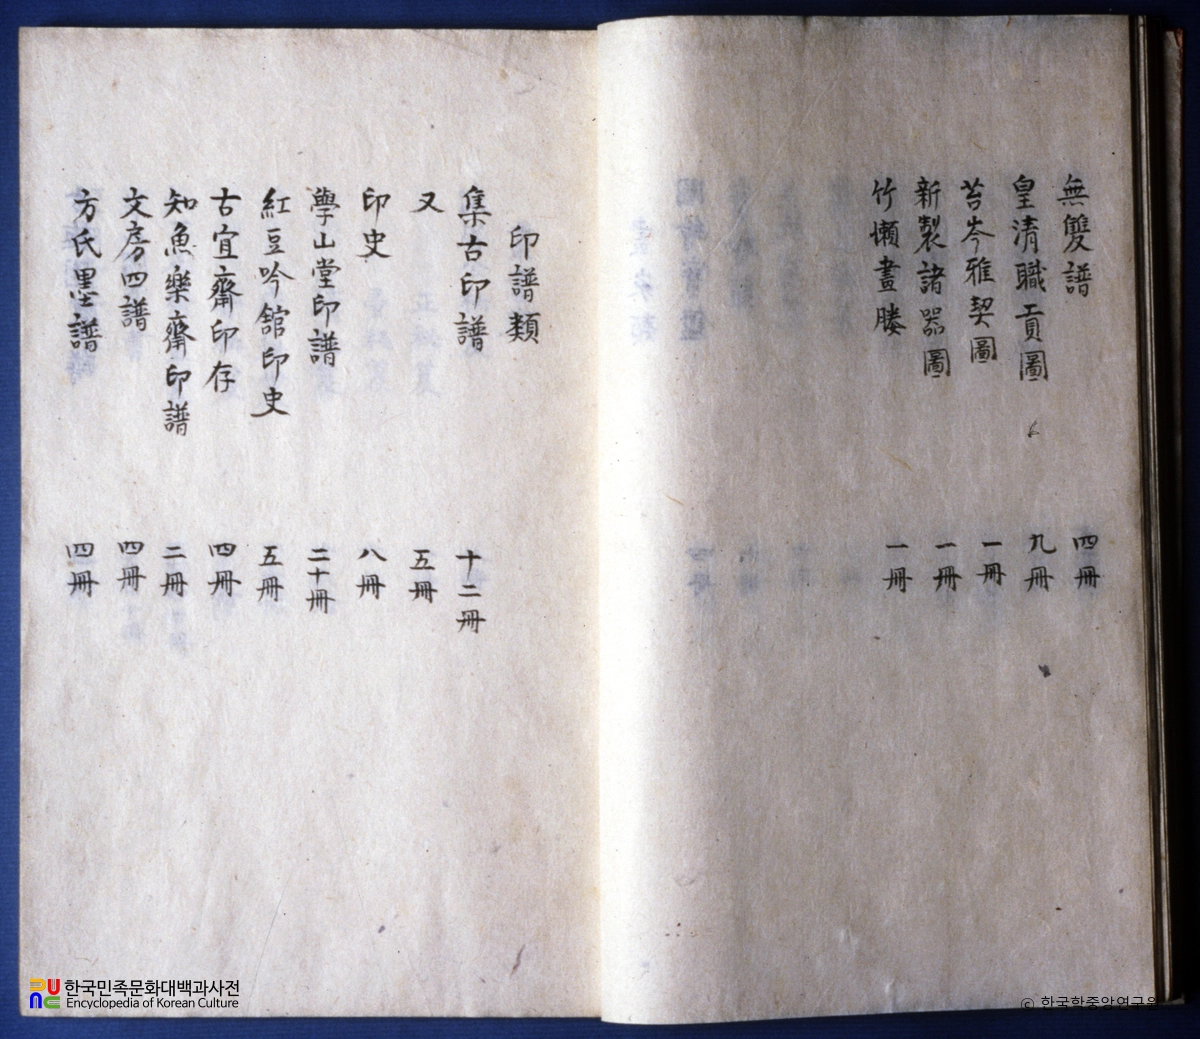 無雙譜 四冊
皇清職貢圖 九冊
苔岑雅契圖 一冊
新製諸器圖 一冊
竹懶畫媵 一冊
印譜類
集古印譜 十二冊
又 五冊
印史 八冊
學山堂印譜 二十冊
紅豆吟館印史 五冊
古宜齋印存 四冊
知魚樂齋印譜 二冊
文房四譜 四冊
方氏墨譜 四冊
한국민족문화대백과사전
Encyclopedia of Korean Culture
ⓒ 한국학중앙연구원